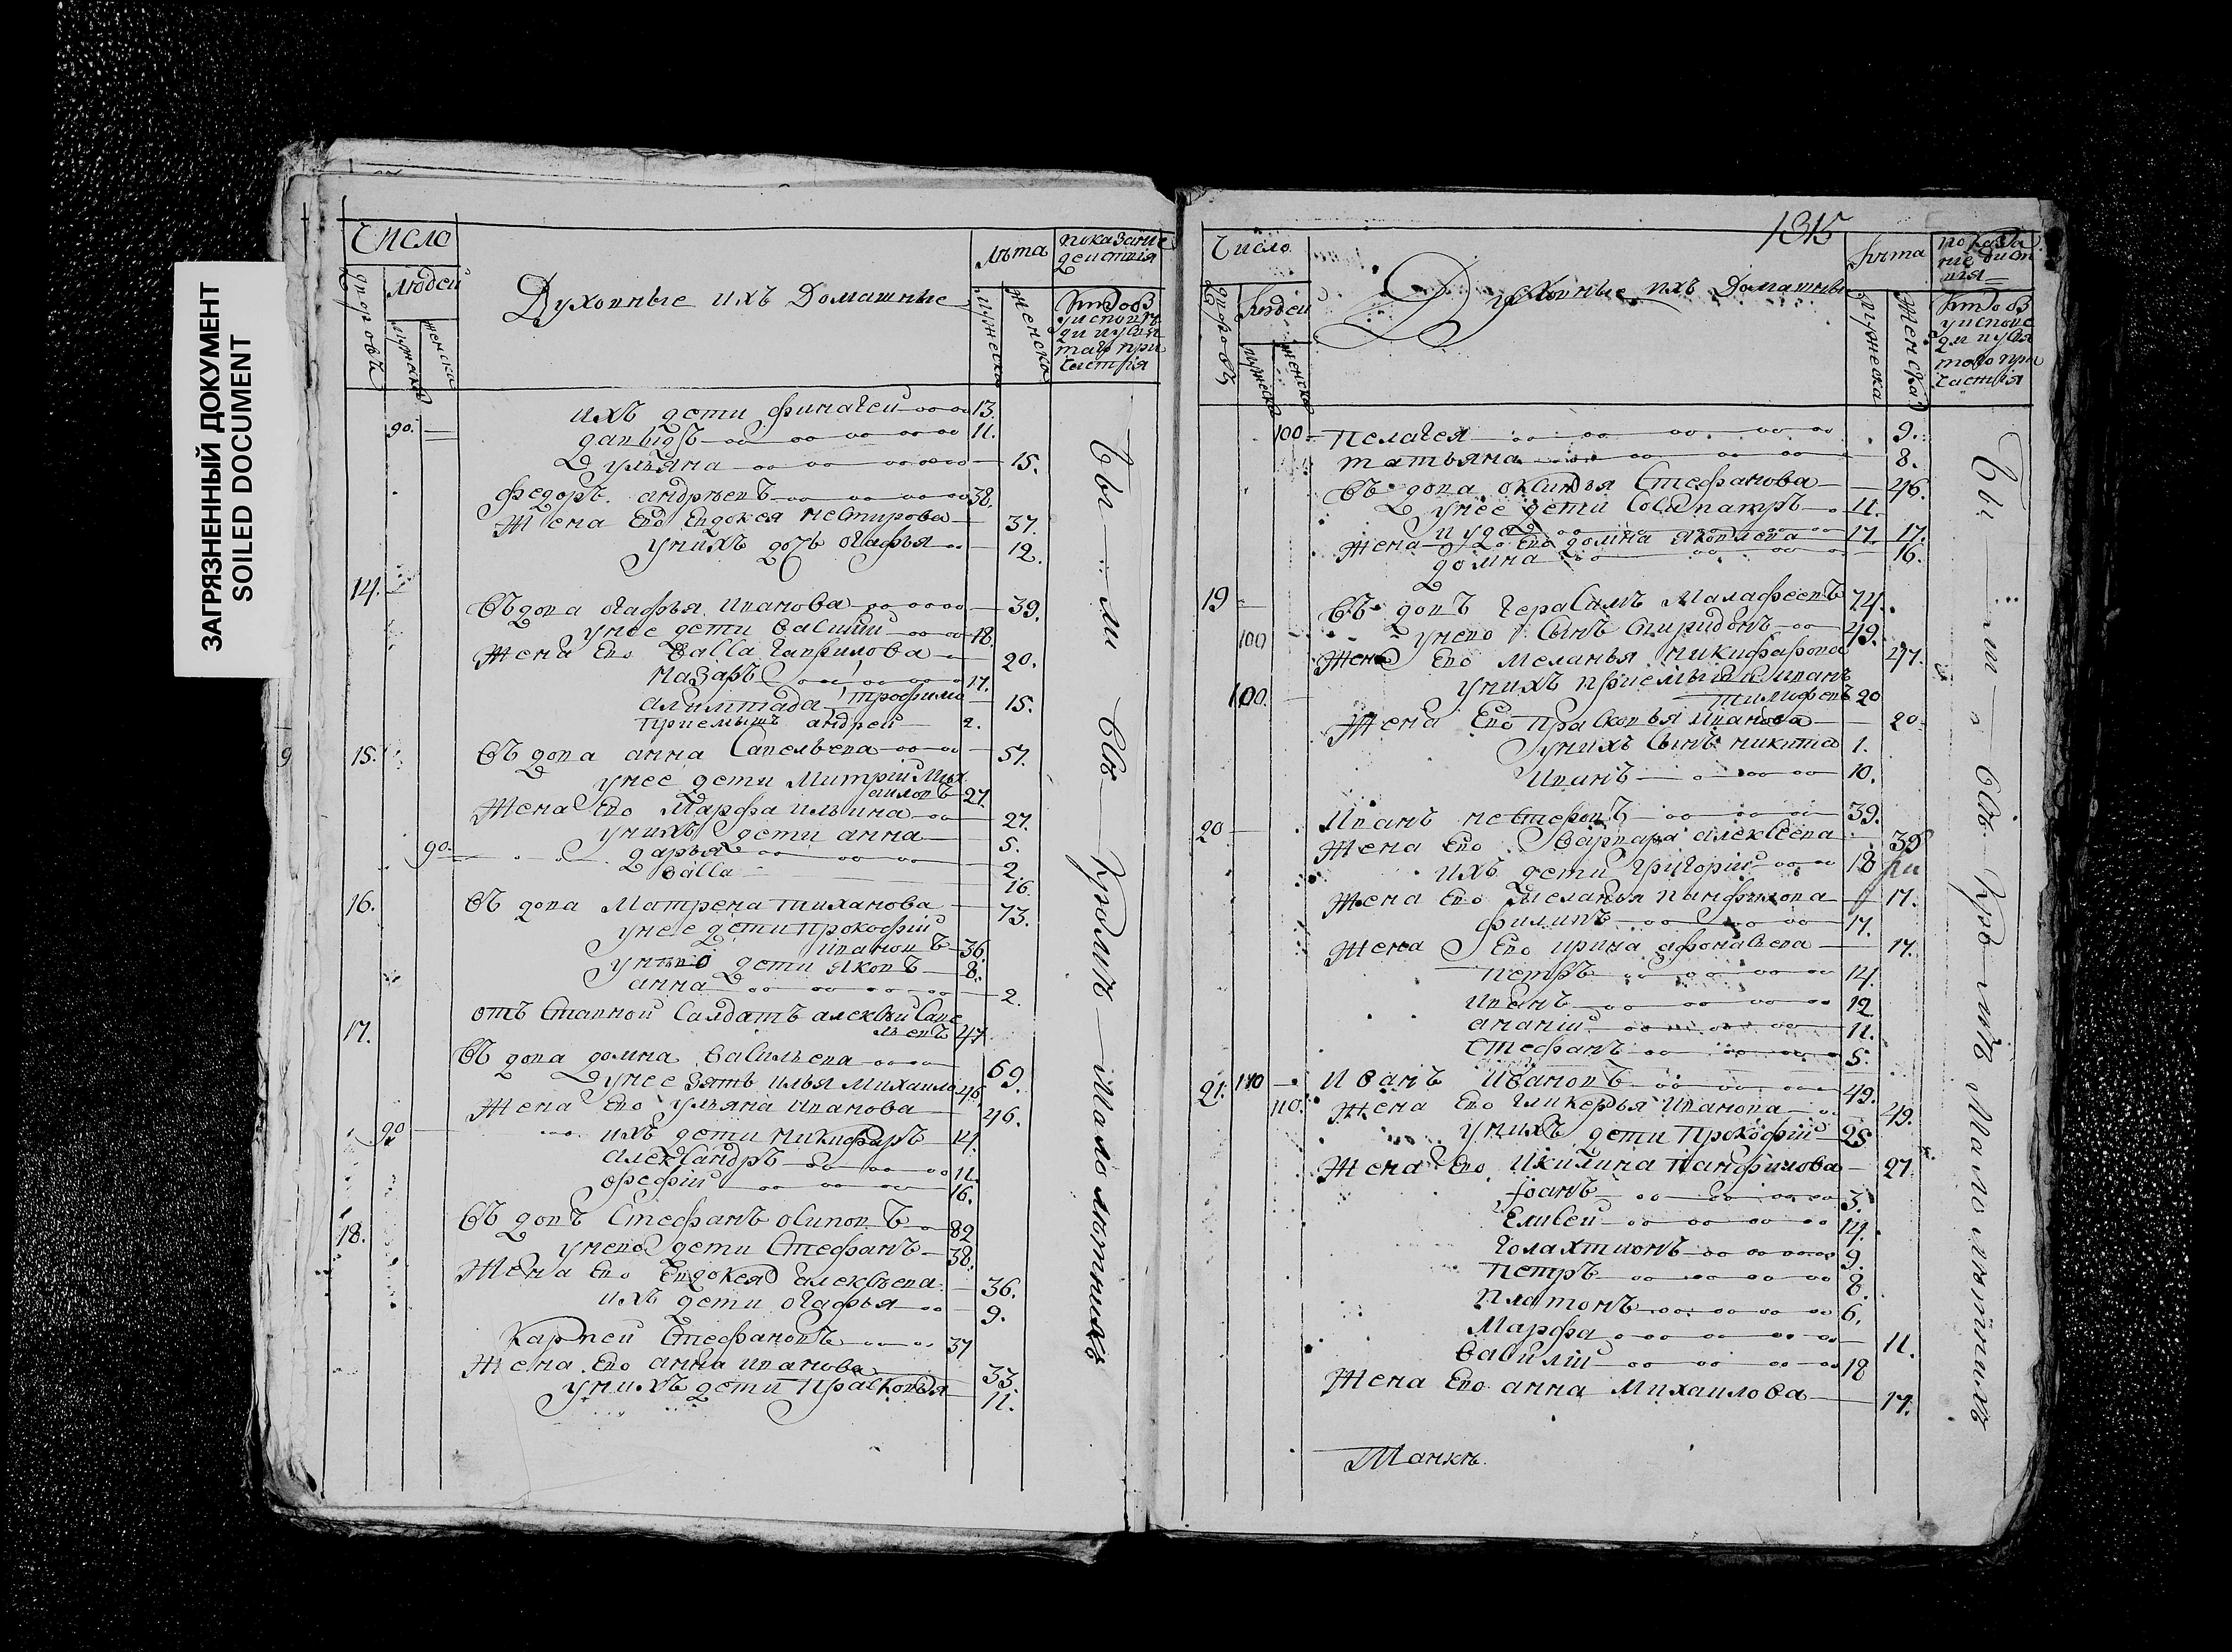 ЗАГРЯЗНЕННЫЙ ДОКУМЕНТ
SOILED DOCUMENT
Число
людей
дворовъ
мужеска
женска
Духовные ихъ Домашные
лѣта
мужеска
женска
показание
деиствія
Кто оз
у испов
ди и у свя
таго при
частія
ихъ дети финагеи 13.
90. давыдъ 11.
ульяна 15.
федоръ андрѣевъ 38.
Жена Ево Евдокея нестирова 37.
у нихъ дочь огафья 12.
14.
въдова огафья иванова 39.
у нее дети василии 18.
Жена Ево васса гаврилова 20.
назаръ 17.
алимпада трофима 15.
приемышъ андреи 2.
15. въдова анна савельева 57.
у нее дети Митрій Мих
аиловъ 27.
Жена Ево Марфа ильина 27.
у нихъ дети анна 5.
90. дарья 2.
васса 16.
16. въ дова Матрена тиханова 73.
у нее дети прокофій
ивановъ 36.
у нево дети яковъ 8.
анна 2.
отъ ставнои салдатъ алексѣи саве
17. льевъ 47.
въ дова домна васильева 69.
у нее зять илья михаило 46.
Жена Ево ульяна иванова 46.
90 ихъ дети никифаръ 14.
александръ 11.
орефій 16.
18. въ довъ стефанъ осиповъ 82
у нево дети стефанъ 38.
Жена Ево Евдокея алексѣева 36.
ихъ дети огафья 9.
Карпеи стефановъ 37
Жена Ево анна иванова 33
у нихъ дети прасковья 11.
бы ли свя Кро мѣ мало лютнихъ
1315
Число
людеи
дворовъ
мужеска
женска
Духовные ихъ Домашные
лѣта
мужеска
женска
показа
ние дист
вия
Кто оз
у испове
ди и у свя
таго при
частія
100. пелагея 9.
татьяна 8.
въ дова оксинья стефанова 46.
у нее дети сосипатръ 11.
иуда 17.
Жена Ево домна яковлева 17.
домна 16.
19 въ довъ герасимъ Малафеевъ 74.
100 у нево сынъ спиридонъ 49.
Жена Ево меланья никифарова 47.
у нихъ приемыши иванъ
100. тимофевъ 20
Жена Ево прасковья иванова 20
у нихъ сынъ никита 1.
иванъ 10.
20 иванъ нестеровъ 39.
Жена Ево варвара алексеева 39
ихъ дети григорій 18
Жена Ево меланья панфилова 17.
филипъ 17.
Жена Ево ирина афонасева 17.
петръ 14.
иванъ 12
ананій 11.
стефанъ 5.
21. 110 иванъ ивановъ 49.
110. Жена Ево гликерья иванова 49.
у нихъ дети прокофій 25
Жена Ево Икилина панфилова 27
иоанъ 3.
Елисеи 14.
голахтионъ 9.
петръ 8.
платонъ 6.
Марфа 11.
василій 18
Жена Ево анна Михаилова 17.
бы ли свя Кро мѣ Мало лютнихъ